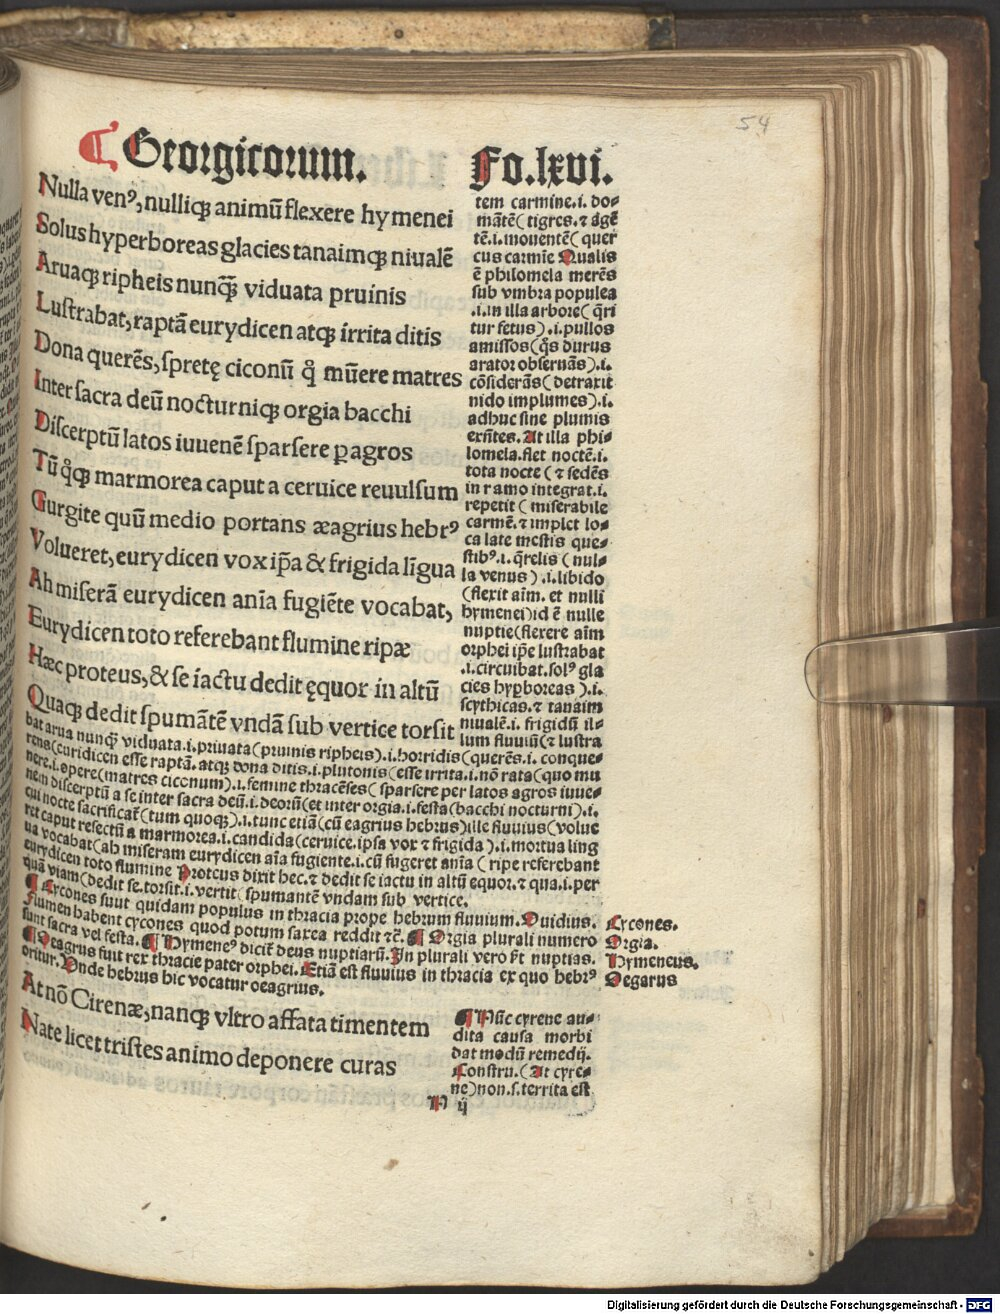 54
Georgicorum.
Fo.lxvi.
Nulla venꝰ, nulliqꝫ animū flexere hymenei
Solus hyperboreas glacies tanaimqꝫ niualē
Aruaqꝫ ripheis nunqꝫ̄ viduata pruinis
Lustrabat, raptā eurydicen atqꝫ irrita ditis
Dona querēs, spretę ciconū q̊ mūere matres
Inter sacra deū nocturniqꝫ orgia bacchi
Discerptū latos iuuenē sparsere ꝑ agros
Tū q̊qꝫ marmorea caput a ceruice reuulsum
Gurgite quū medio portans æagrius hebrꝰ
Volueret, eurydicen vox ip̄a & frigida līgua
Ah miserā eurydicen anīa fugiēte vocabat,
Eurydicen toto referebant flumine ripæ
Hæc proteus, & se iactu dedit ęquor in altū
Quaqꝫ dedit spumātē vndā sub vertice torsit
tem carmine.i. do⸗
mātē( tigres. ⁊ agē
tē.i. mouentē( quer
cus carmīe Qualis
ē philomela merēs
sub vmbra populea
.i. in illa arbore( q̄ri
tur fetus).i. pullos
amissos( q̄s durus
arator obseruās).i.
cōsiderās( detraxit
nido implumes).i.
adhuc sine plumis
exn̄tes. At illa phi⸗
lomela. flet noctē.i.
tota nocte ( ⁊ sedēs
in ramo integrat.i.
repetit ( miserabile
carmē. ⁊ implet lo⸗
ca late mestis que⸗
stibꝰ.i. q̄relis ( nul⸗
la venus ).i. libido
(flexit aīm. et nulli
hymenei) id ē nulle
nuptie( flexere aīm
orphei ip̄e lustrabat
.i. circuibat. solꝰ gla
cies hyꝑboreas ).i.
scythicas. ⁊ tanaim
niualē.i. frigidū il⸗
lum fluuiū( ⁊ lustra
bat arua nunqꝫ̄ viduata.i. priuata( pruinis ripheis).i. horridis( querēs.i. conque⸗
rens( euridicen esse raptā. atqꝫ dona ditis.i. plutonis( esse irrita.i. nō rata( quo mu
nere.i. opere( matres ciconum).i. femine thracēses( sparsere per latos agros iuue⸗
nem discerptū a se inter sacra deū.i. deorū( et inter orgia.i. festa( bacchi nocturni).i.
cui nocte sacrificat̄( tum quoqꝫ).i. tunc etiā( cū eagrius hebrus) ille fluuius( volue
ret caput resectū a marmorea.i. candida( ceruice. ipsa vox ⁊ frigida ).i. mortua ling
ua vocabat( ah miseram eurydicen aīa fugiente.i. cū fugeret anīa ( ripe referebant
eurydicen toto flumine Proteus dixit hec. ⁊ dedit se iactu in altū equor. ⁊ qua.i. per
quā viam( dedit se. torsit.i. vertit( spumantē vndam sub vertice.
¶ Cycones suut quidam populus in thracia prope hebrum fluuium. Ouidius.
Flumen habent cycones quod potum saxea reddit ⁊c̄. ¶ Orgia plurali numero
sunt sacra vel festa. ¶ Hymenꝰ dicit̄ deus nuptiarū. In plurali vero ꝓt nuptias.
¶ Oeagrus fuit rex thracie pater orphei. Etiā est fluuius in thracia ex quo hebrꝰ
oritur. Unde hebrus hic vocatur oeagrius.
Cycones.
Orgia.
Hymeneus.
Oegarus
At nō Cirenæ, nanqꝫ vltro affata timentem
Nate licet tristes animo deponere curas
¶ Hic cyrene au⸗
dita causa morbi
dat modū remedij.
Constru. ( At cyre⸗
ne) non. s. territa est
ij
Digitalisierung gefördert durch die Deutsche Forschungsgemeinschaft - DFG